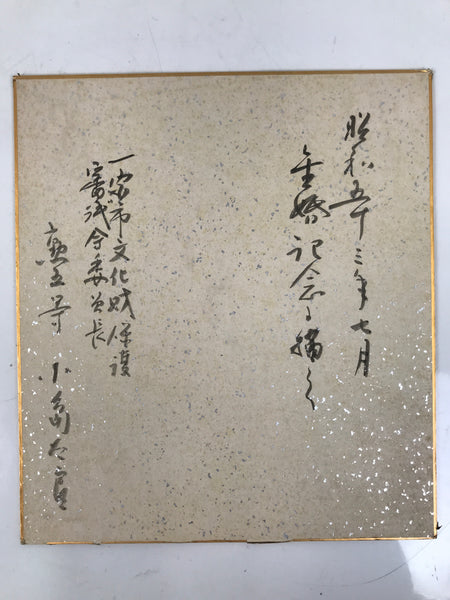 昭和五十三年七月
金婚記念に描く
一宮市文化財保護
審議会委員長
勲五等 小